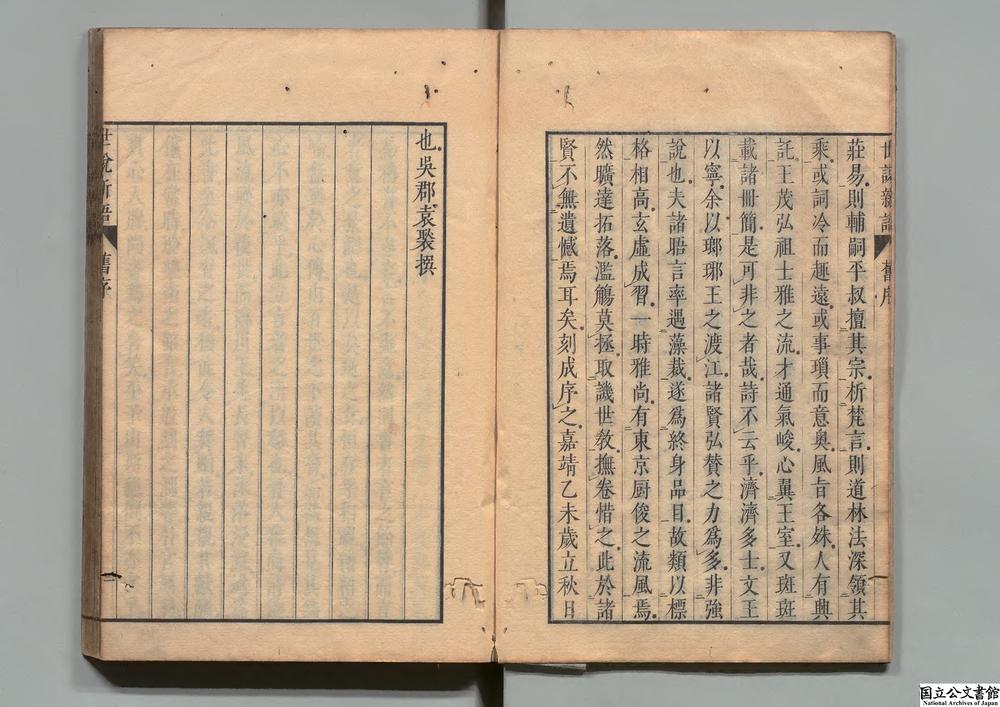 世説新語 舊序
莊易則輔嗣平叔擅其宗析梵言則道林法深領其
乘或詞冷而趣遠或事瑣而意奥風旨各殊人有興
託王茂弘祖士雅之流才通氣峻心翼王室又斑斑
載諸冊簡是可非之者哉詩不云乎濟濟多士文王
以寧余以瑯琊王之渡江諸賢弘賛之力爲多非強
說也夫諸晤言率遇藻裁遂爲終身品目故類以標
格相高玄虛成習一時雅尚有東京厨俊之流風焉
然曠達拓落濫觴莫拯取譏世敎撫卷惜之此於諸
賢不無遺憾焉耳矣刻成序之嘉靖乙未歲立秋日
也吳郡袁褧撰
世說新語 舊序
国立公文書館
National Archives of Japan